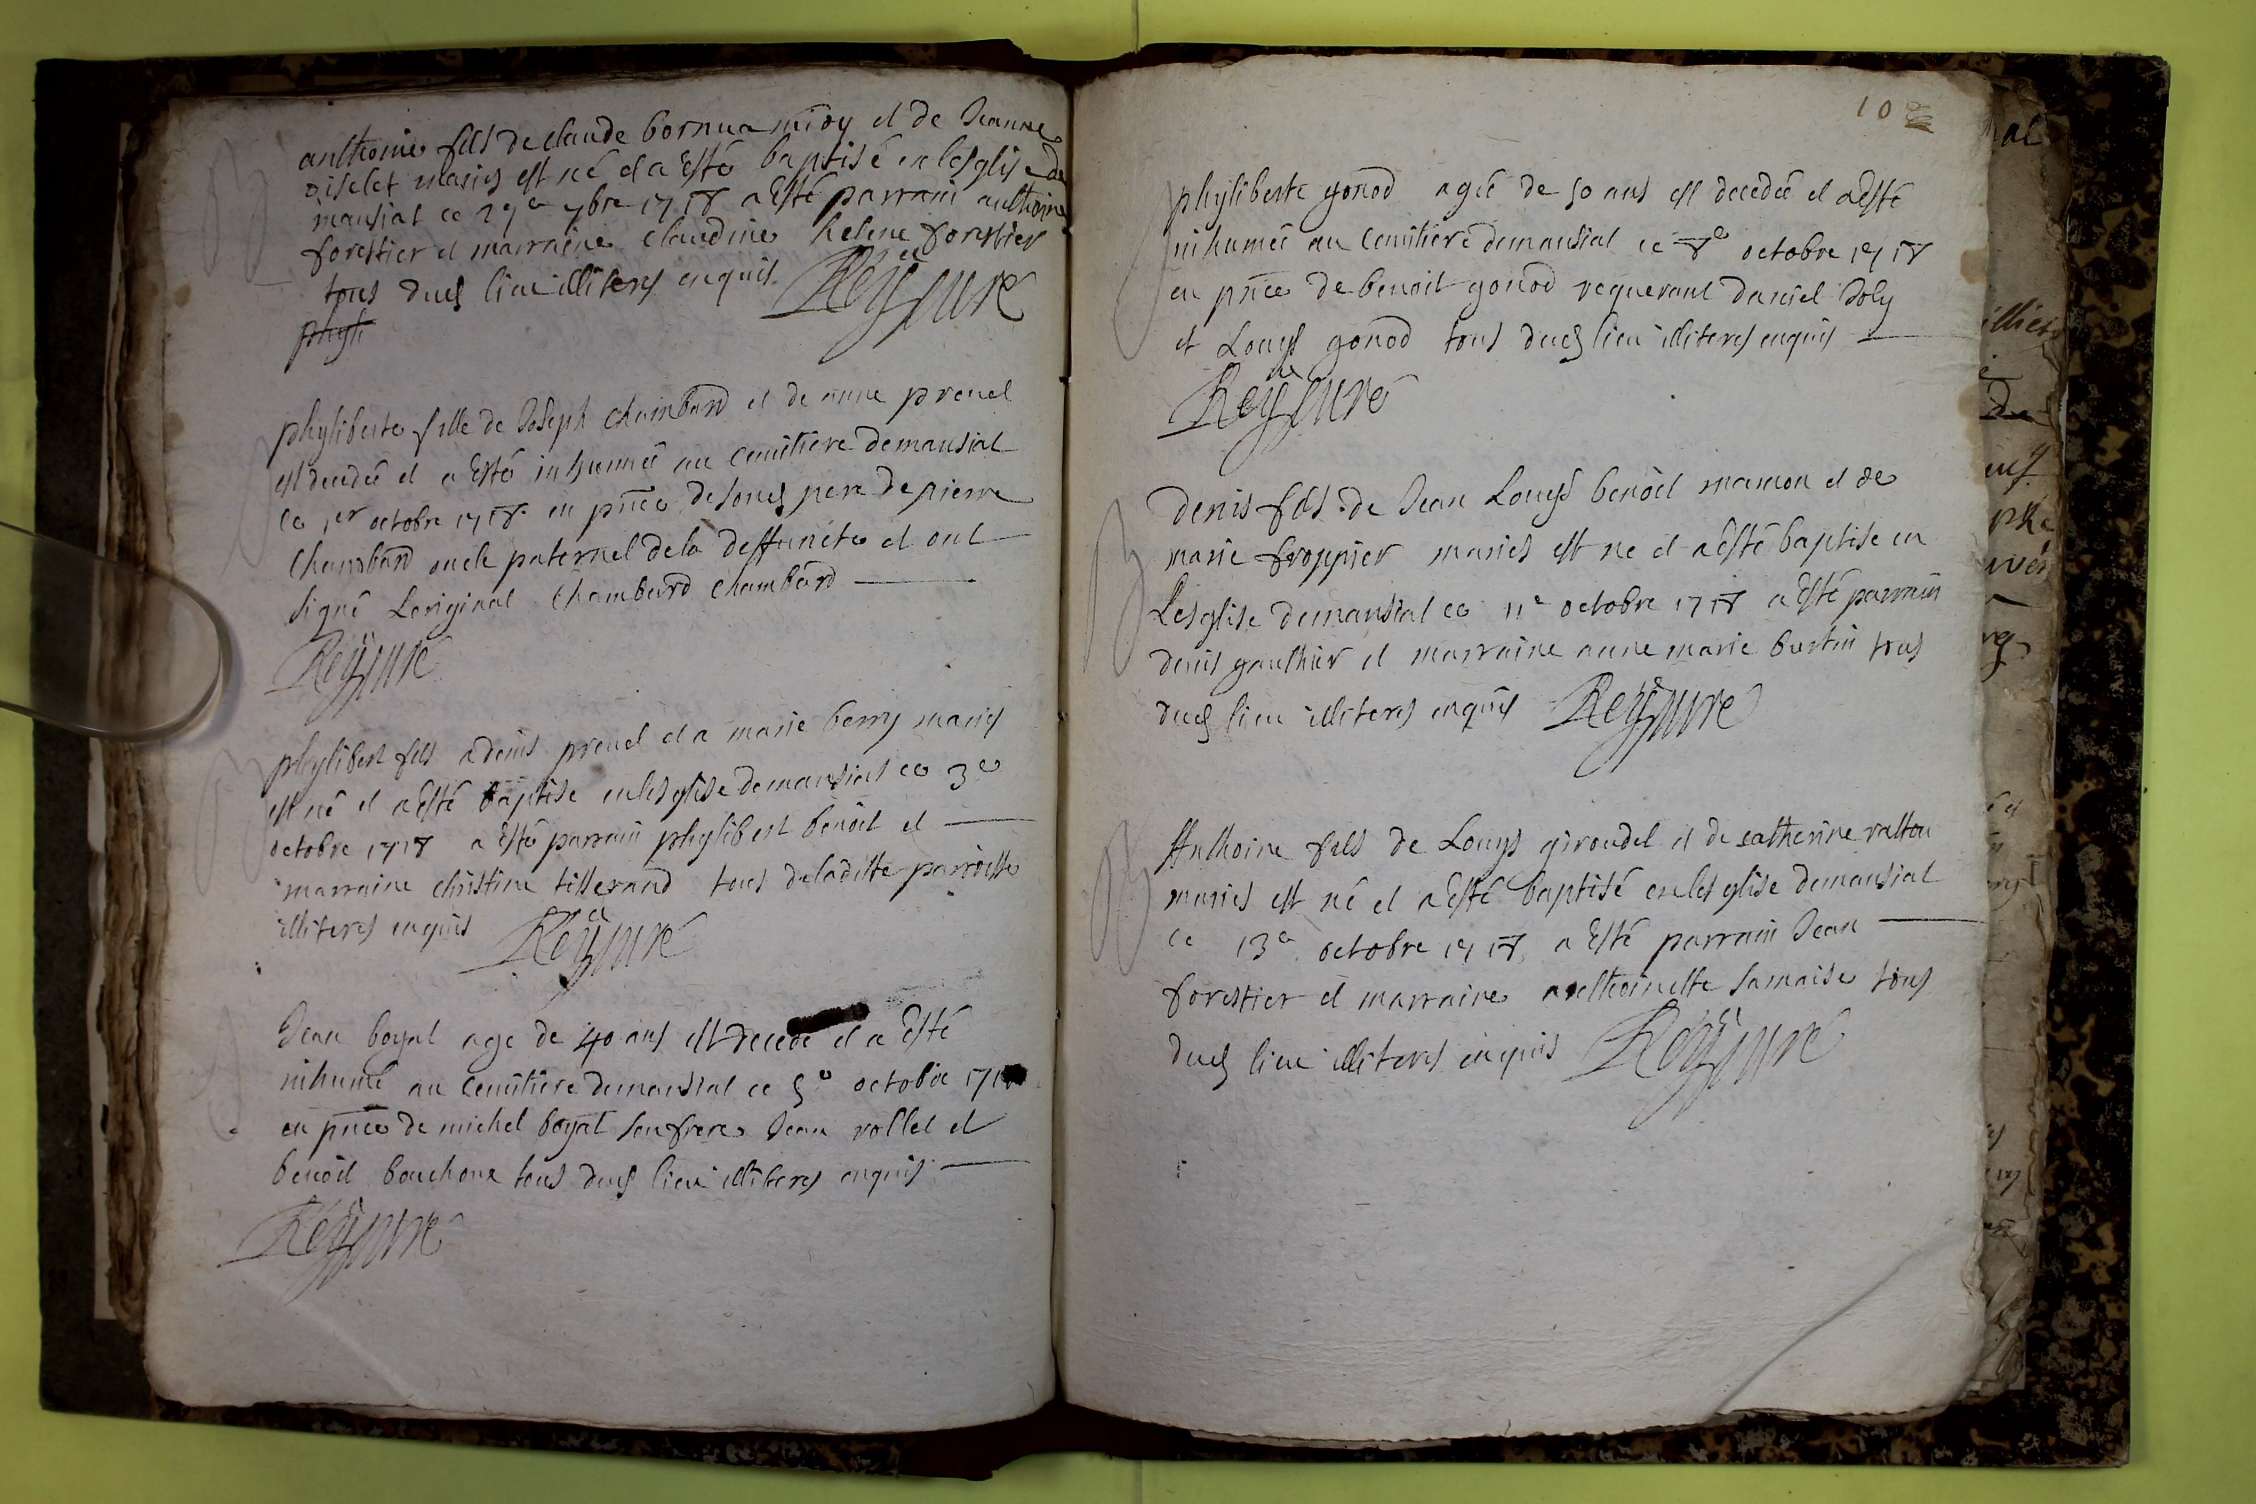 anthoine fils de claude bornua midy et de Jeanne
oiselet maries est né et a Esté baptisé en lesglise de
mansiat ce 29e 7bre 1718 a Esté parrain anthoine
forestier et marraine claudine helene forestier
tous dud lieu illiteres enquis Rey curé
phyli
phyliberte fille de Joseph Chambard et de anne prevel
est decedée et a Esté inhumée au cemitiere de mansiat
ce 1er octobre 1718 en pñce de sond pere de pierre
Chambard oncle paternel de la deffuncte et ont
signé Loriginal Chambard Chambard
Rey curé
phylibert fils a denis prevel et a marie berry maries
est né et a Esté baptise en lesglise de mansiat ce 3e
octobre 1718 a Esté parrain phylibert benoit et
marraine christine tisserand tous de laditte parroisse
illiteres enquis Rey curé
Jean boyat age de 40 ans est decede et a Esté
inhumé au cemitiere de mansiat ce 5e octobre
en pñce de michel boyat son frere Jean rollet et
benoit bouchoux tous dud lieu illiteres enquis
Rey curé
10
phyliberte gonod agée de 50 ans est decedée et a Esté
inhumée au cemitiere de mansiat ce 8e octobre 1718
en pñce de benoit gonod requerant daniel Joly
et Louys gonod tous dud lieu illiteres enquis
Rey curé
Denis fils de Jean Louys benoit mamon et de
marie froppier maries est ne et a Esté baptise en
Lesglise de mansiat ce 11e octobre 1718 a Esté parrain
denis gauthier et marraine anne marie burtin tous
dud lieu illiteres enquis Rey curé
Anthoine fils de Louys giroudet et de catherine ratton
maries est né et a Esté baptisé en lesglise de mansiat
ce 13e octobre 1718 a Esté parrain Jean
forestier et marraine anthoinette samaise tous
dud lieu illiteres enquis Rey curé